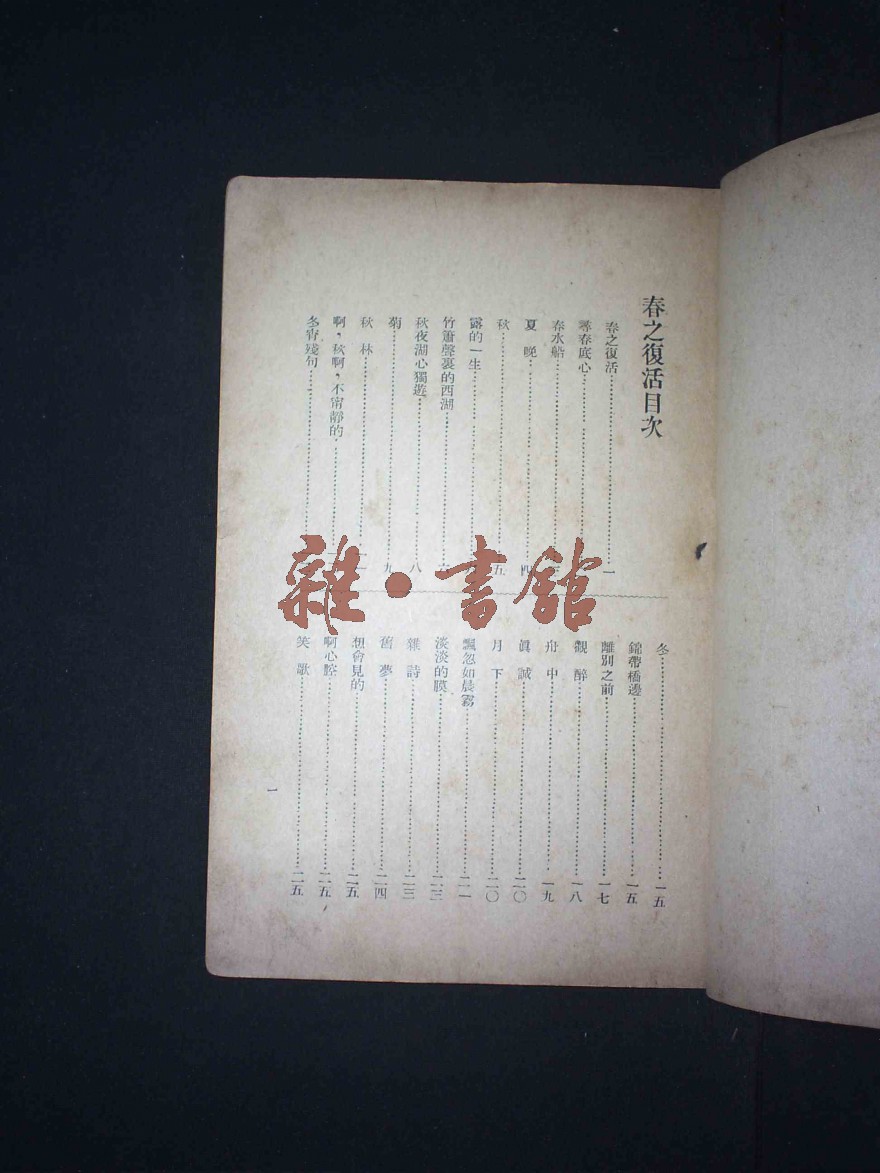 春之復活目次
春之復活……一
尋春底心……
春水船……
夏晚……四
秋……五
露的一生……
竹簫聲裏的西湖……六
秋夜湖心獨遊……八
菊……九
秋林……
啊，秋啊，不甯靜的……
冬宵殘句……
冬……一五
錦帶橋邊……一五
離別之前……一七
觀醉……一八
舟中……一九
眞誠……二〇
月下……二〇
飄忽如晨霧……二一
淡淡的膜……二三
雜詩……二三
舊夢……二四
想會見的……二五
啊心腔……二五
笑歌……二五
一
雜·書館